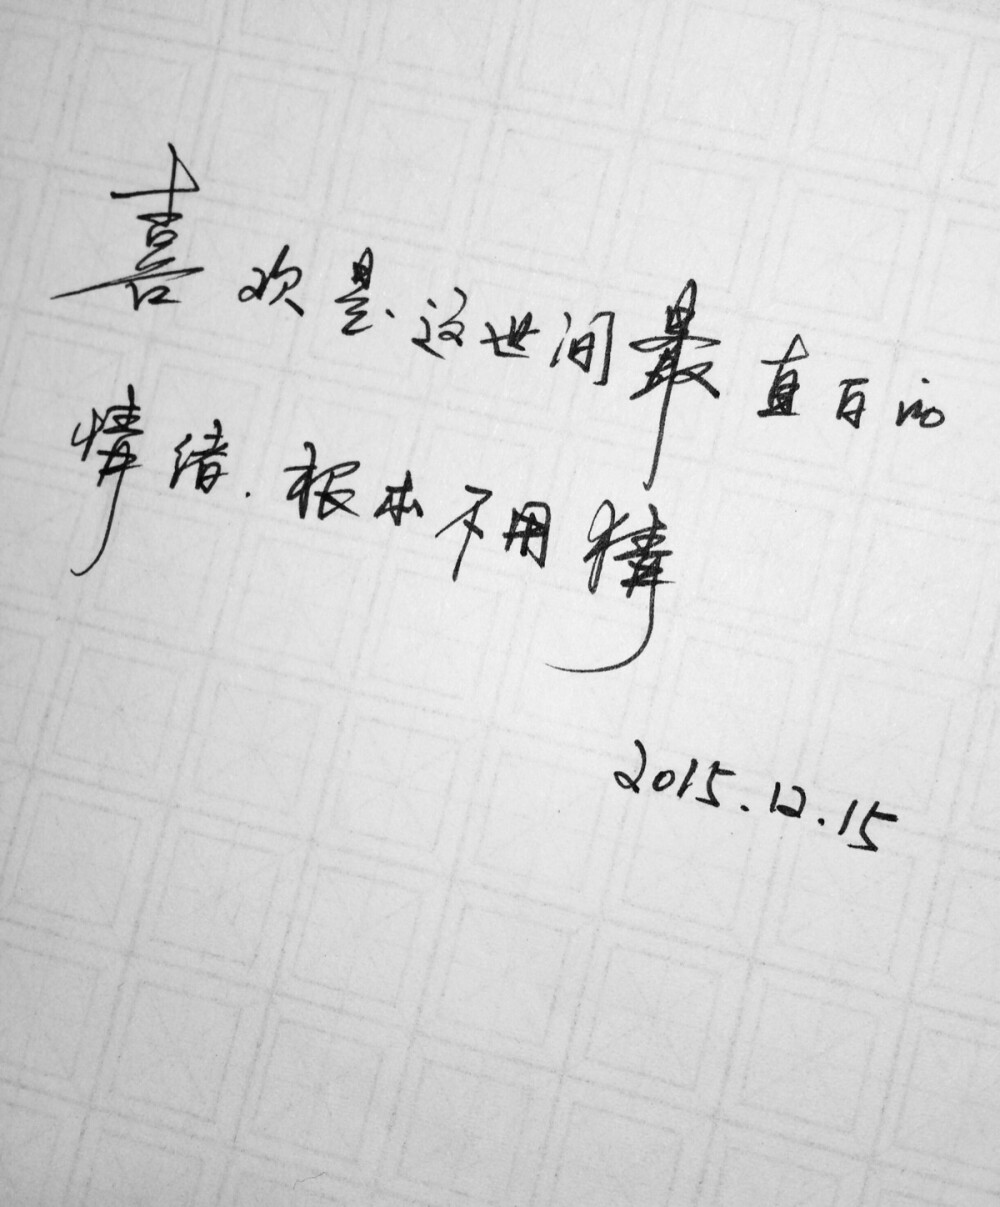 喜欢是这世间最直白的
情绪.根本不用猜
2015.12.15